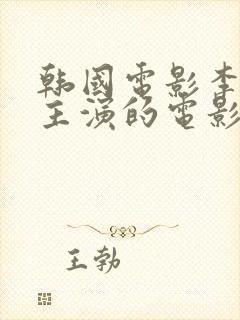 韩國電影李
主演的電影
王勃